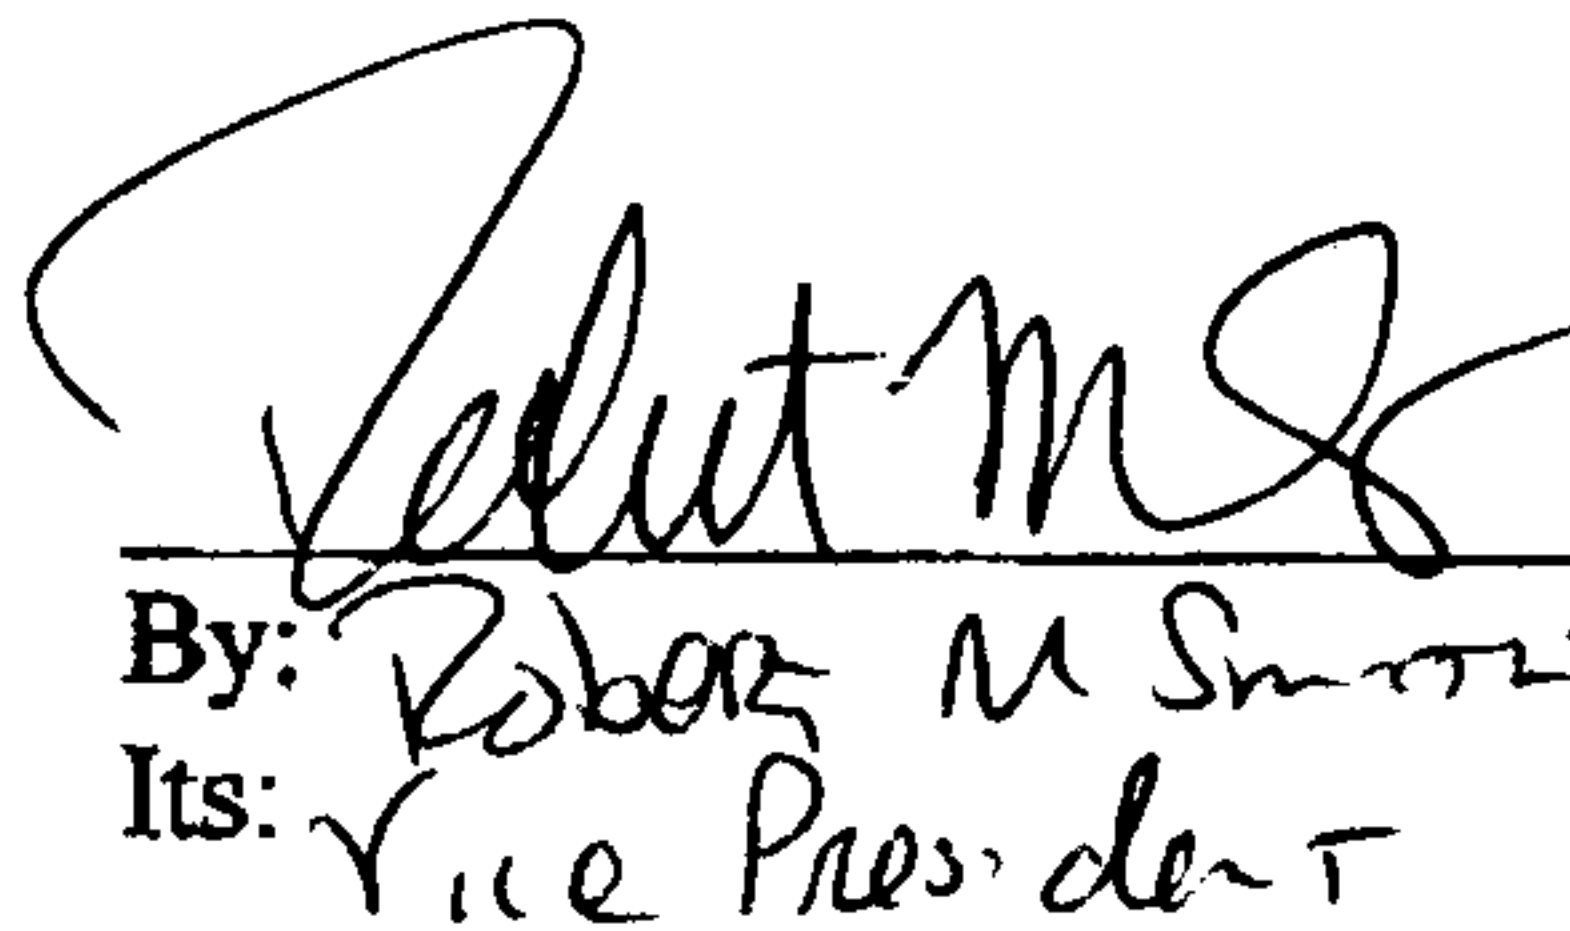 Robert M
By: Robert M
Its: Vice President